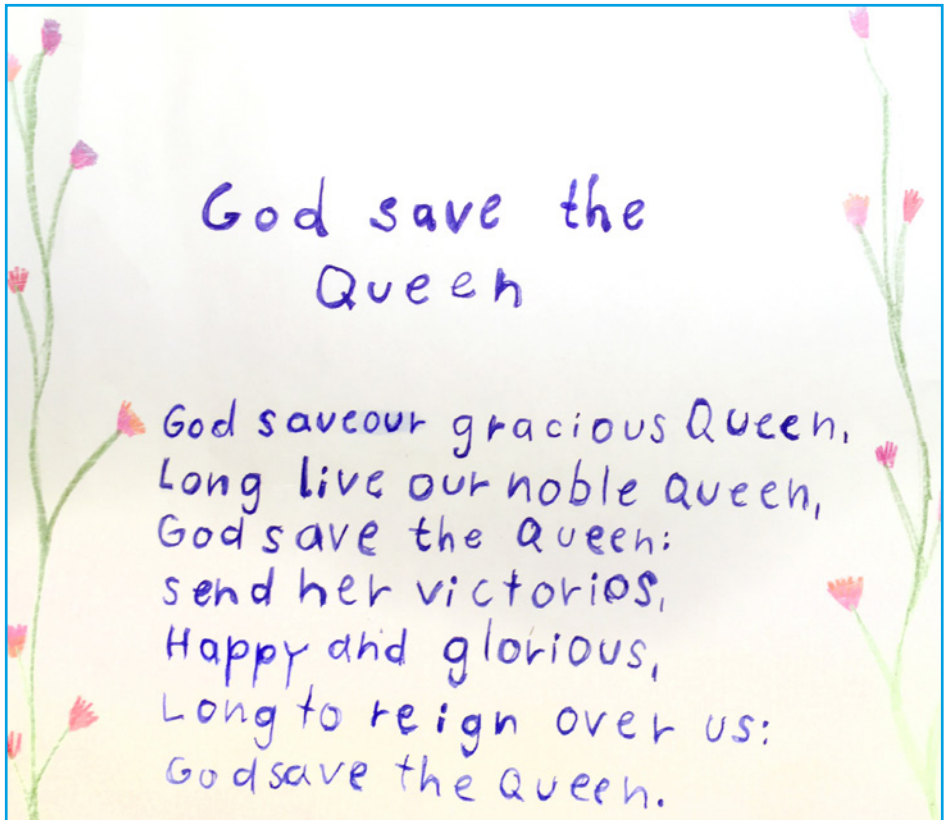 God save the
Queen
God saveour gracious Queen,
Long live our noble Queen,
God save the Queen:
send her victorios,
Happy and glorious,
Long to reign over us:
God save the Queen.